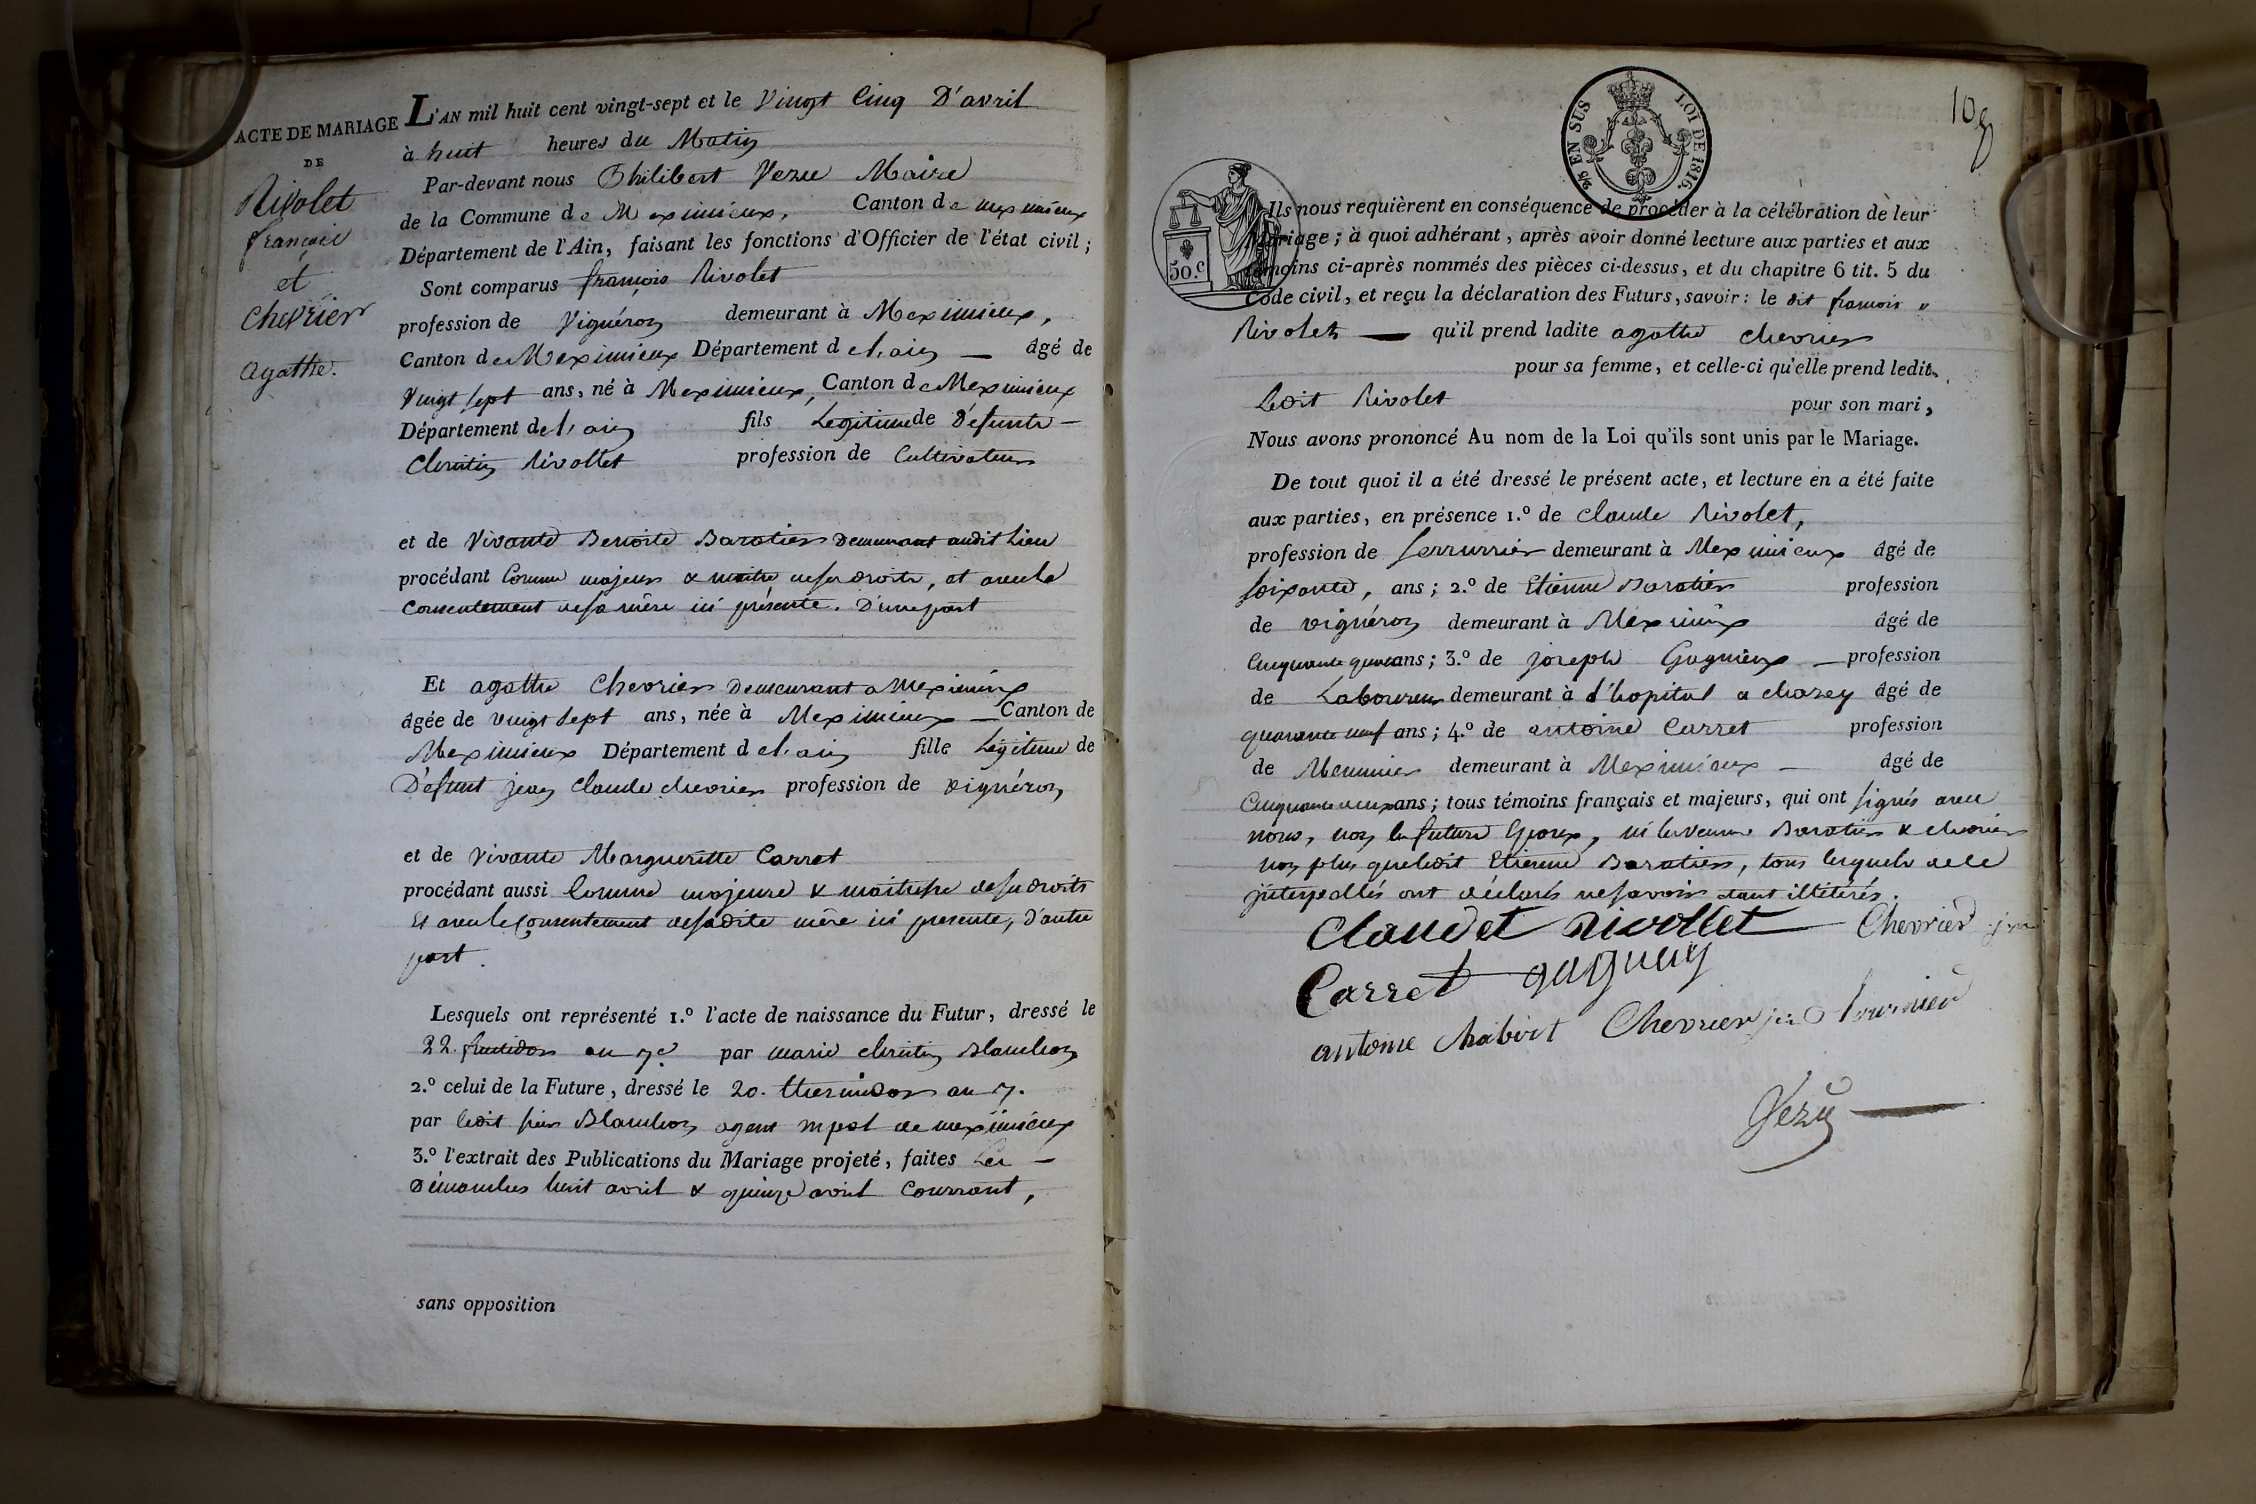 ACTE DE MARIAGE
DE
Rivolet
françois
et
Chevrier
agathe.
L'AN mil huit cent vingt-sept et le Vingt Cinq D'avril
à huit heures du Matin
Par-devant nous Philibert Vezu Maire
de la Commune de Meximieux, Canton de meximieux
Département de l'Ain, faisant les fonctions d'Officier de l'état civil ;
Sont comparus françois Rivolet
profession de Vignéron demeurant à Meximieux,
Canton de Meximieux Département de l'ain — âgé de
Vingt sept ans, né à Meximieux, Canton de Meximieux
Département de l'ain fils Legitime de Défunts —
Christin Rivollet profession de Cultivateur
et de Vivante Benoite Baratier Demeurant audit Lieu
procédant Comme majeur & maitre de ses droits, et avec le
Consentement de sa mère ici présente. D'une part
Et agathe Chevrier Demeurant a Meximieux
âgée de vingt sept ans, née à Meximieux — Canton de
Meximieux Département de l'ain fille Légitime de
Défunt jean Claude chevrier profession de vignéron
et de Vivante Marguerite Carret
procédant aussi Comme majeure & maitresse de ses droits
Et avec le Consentement de sadite mère ici presente, d'autre
part.
Lesquels ont représenté 1.º l'acte de naissance du Futur, dressé le
22. fructidor an 7e par marie christin Blanchon
2.º celui de la Future, dressé le 20. thermidor an 7.
par ledit sieur Blanchon agent mpal de meximieux
3.º l'extrait des Publications du Mariage projeté, faites Les —
Dimanches huit avril & quinze avril Courrant,
sans opposition
2/5 EN SUS LOI DE 1816.
108
50.c
Ils nous requièrent en conséquence de procéder à la célébration de leur
Mariage ; à quoi adhérant, après avoir donné lecture aux parties et aux
témoins ci-après nommés des pièces ci-dessus, et du chapitre 6 tit. 5 du
Code civil, et reçu la déclaration des Futurs, savoir : le dit françois
Rivolet — qu'il prend ladite agathe chevrier
pour sa femme, et celle-ci qu'elle prend ledit
Ledit Rivolet pour son mari,
Nous avons prononcé Au nom de la Loi qu'ils sont unis par le Mariage.
De tout quoi il a été dressé le présent acte, et lecture en a été faite
aux parties, en présence 1.º de claude Rivolet,
profession de serrurrier demeurant à Meximieux âgé de
soixante, ans ; 2.º de Etienne Baratier profession
de vignéron demeurant à Meximieux âgé de
Cinquante ans ; 3.º de joseph Gagnieux — profession
de Laboureur demeurant à l'hopital a chazey âgé de
quarante neuf ans ; 4.º de antoine Carret profession
de Meunnier demeurant à Meximieux — âgé de
Cinquante deux ans ; tous témoins français et majeurs, qui ont signés avec
nous, non les futurs Epoux, ni les veuves Baratier & chevrier
non plus que ledit Etienne Baratier, tous lesquels de ce
jnterpellés ont déclarés ne savoir étant illitérés.
Claudet Rivollet Chevrier
Carret gagneux
antoine chabert Chevrier fournier
Vezu